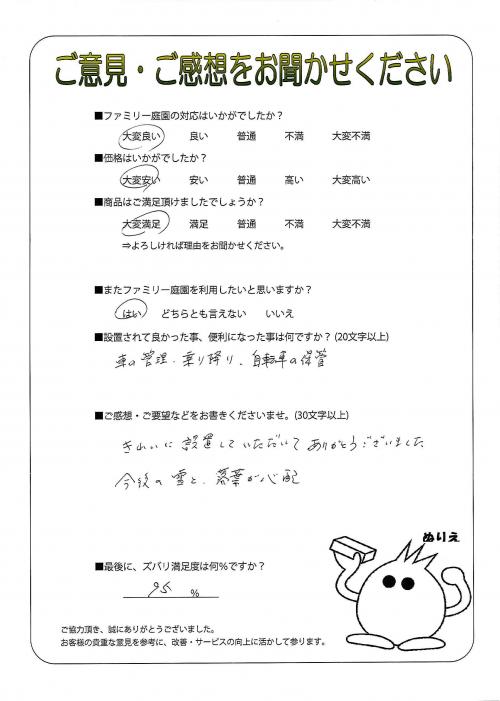 ご意見・ご感想をお聞かせください
■ファミリー庭園の対応はいかがでしたか？
大変良い 良い 普通 不満 大変不満
■価格はいかがでしたか？
大変安い 安い 普通 高い 大変高い
■商品はご満足頂けましたでしょうか？
大変満足 満足 普通 不満 大変不満
⇒よろしければ理由をお聞かせください。
■またファミリー庭園を利用したいと思いますか？
はい どちらとも言えない いいえ
■設置されて良かった事、便利になった事は何ですか？(20文字以上)
車の管理・乗り降り、自転車の保管
■ご感想・ご要望などをお書きくださいませ。(30文字以上)
きれいに設置していただいてありがとうございました
今後の雪と、落葉が心配
ぬりえ
■最後に、ズバリ満足度は何％ですか？
95 ％
ご協力頂き、誠にありがとうございました。
お客様の貴重な意見を参考に、改善・サービスの向上に活かして参ります。